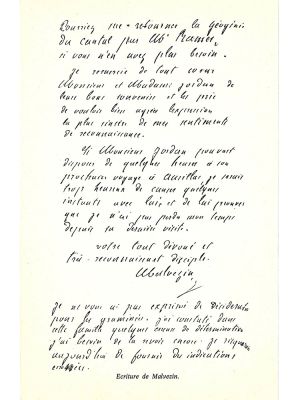 Pourriez me retourner la géogénie
du cantal par Mr Rames,
si vous n'en avez plus besoin.
Je remercie de tout coeur
Monsieur et Madame Jordan de
leur bons souvenirs et les prie
de vouloir bien agréer l'expression
la plus sincère de mes sentiments
de reconnaissance.
Si Monsieur Jordan pouvait
disposer de quelques heures à son
prochain voyage à Aurillac je serais
trop heureux de causer quelques
instants avec lui, et de lui prouver
que je n'ai pas perdu mon temps
depuis sa dernière visite.
Votre tout dévoué et
très reconnaissant disciple.
Malvezin
Je ne vous ai pas exprimé de desiderata
pour les graminées. J'ai constaté dans
cette famille quelques erreurs de détermination
j'ai besoin de la revoir encore. Je
aujourd'hui de fournir des indications
erronées.
Ecriture de Malvezin.